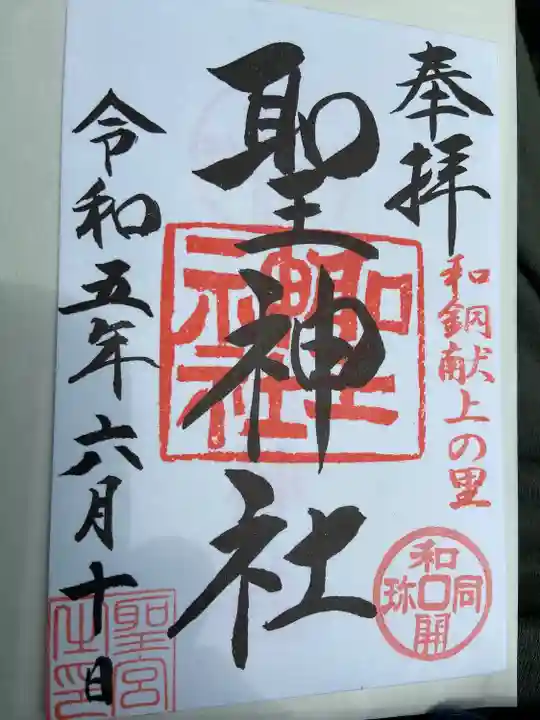 奉拝
和銅献上の里
和同開珎
聖神社
聖神社
令和五年六月十日
聖宮
之印